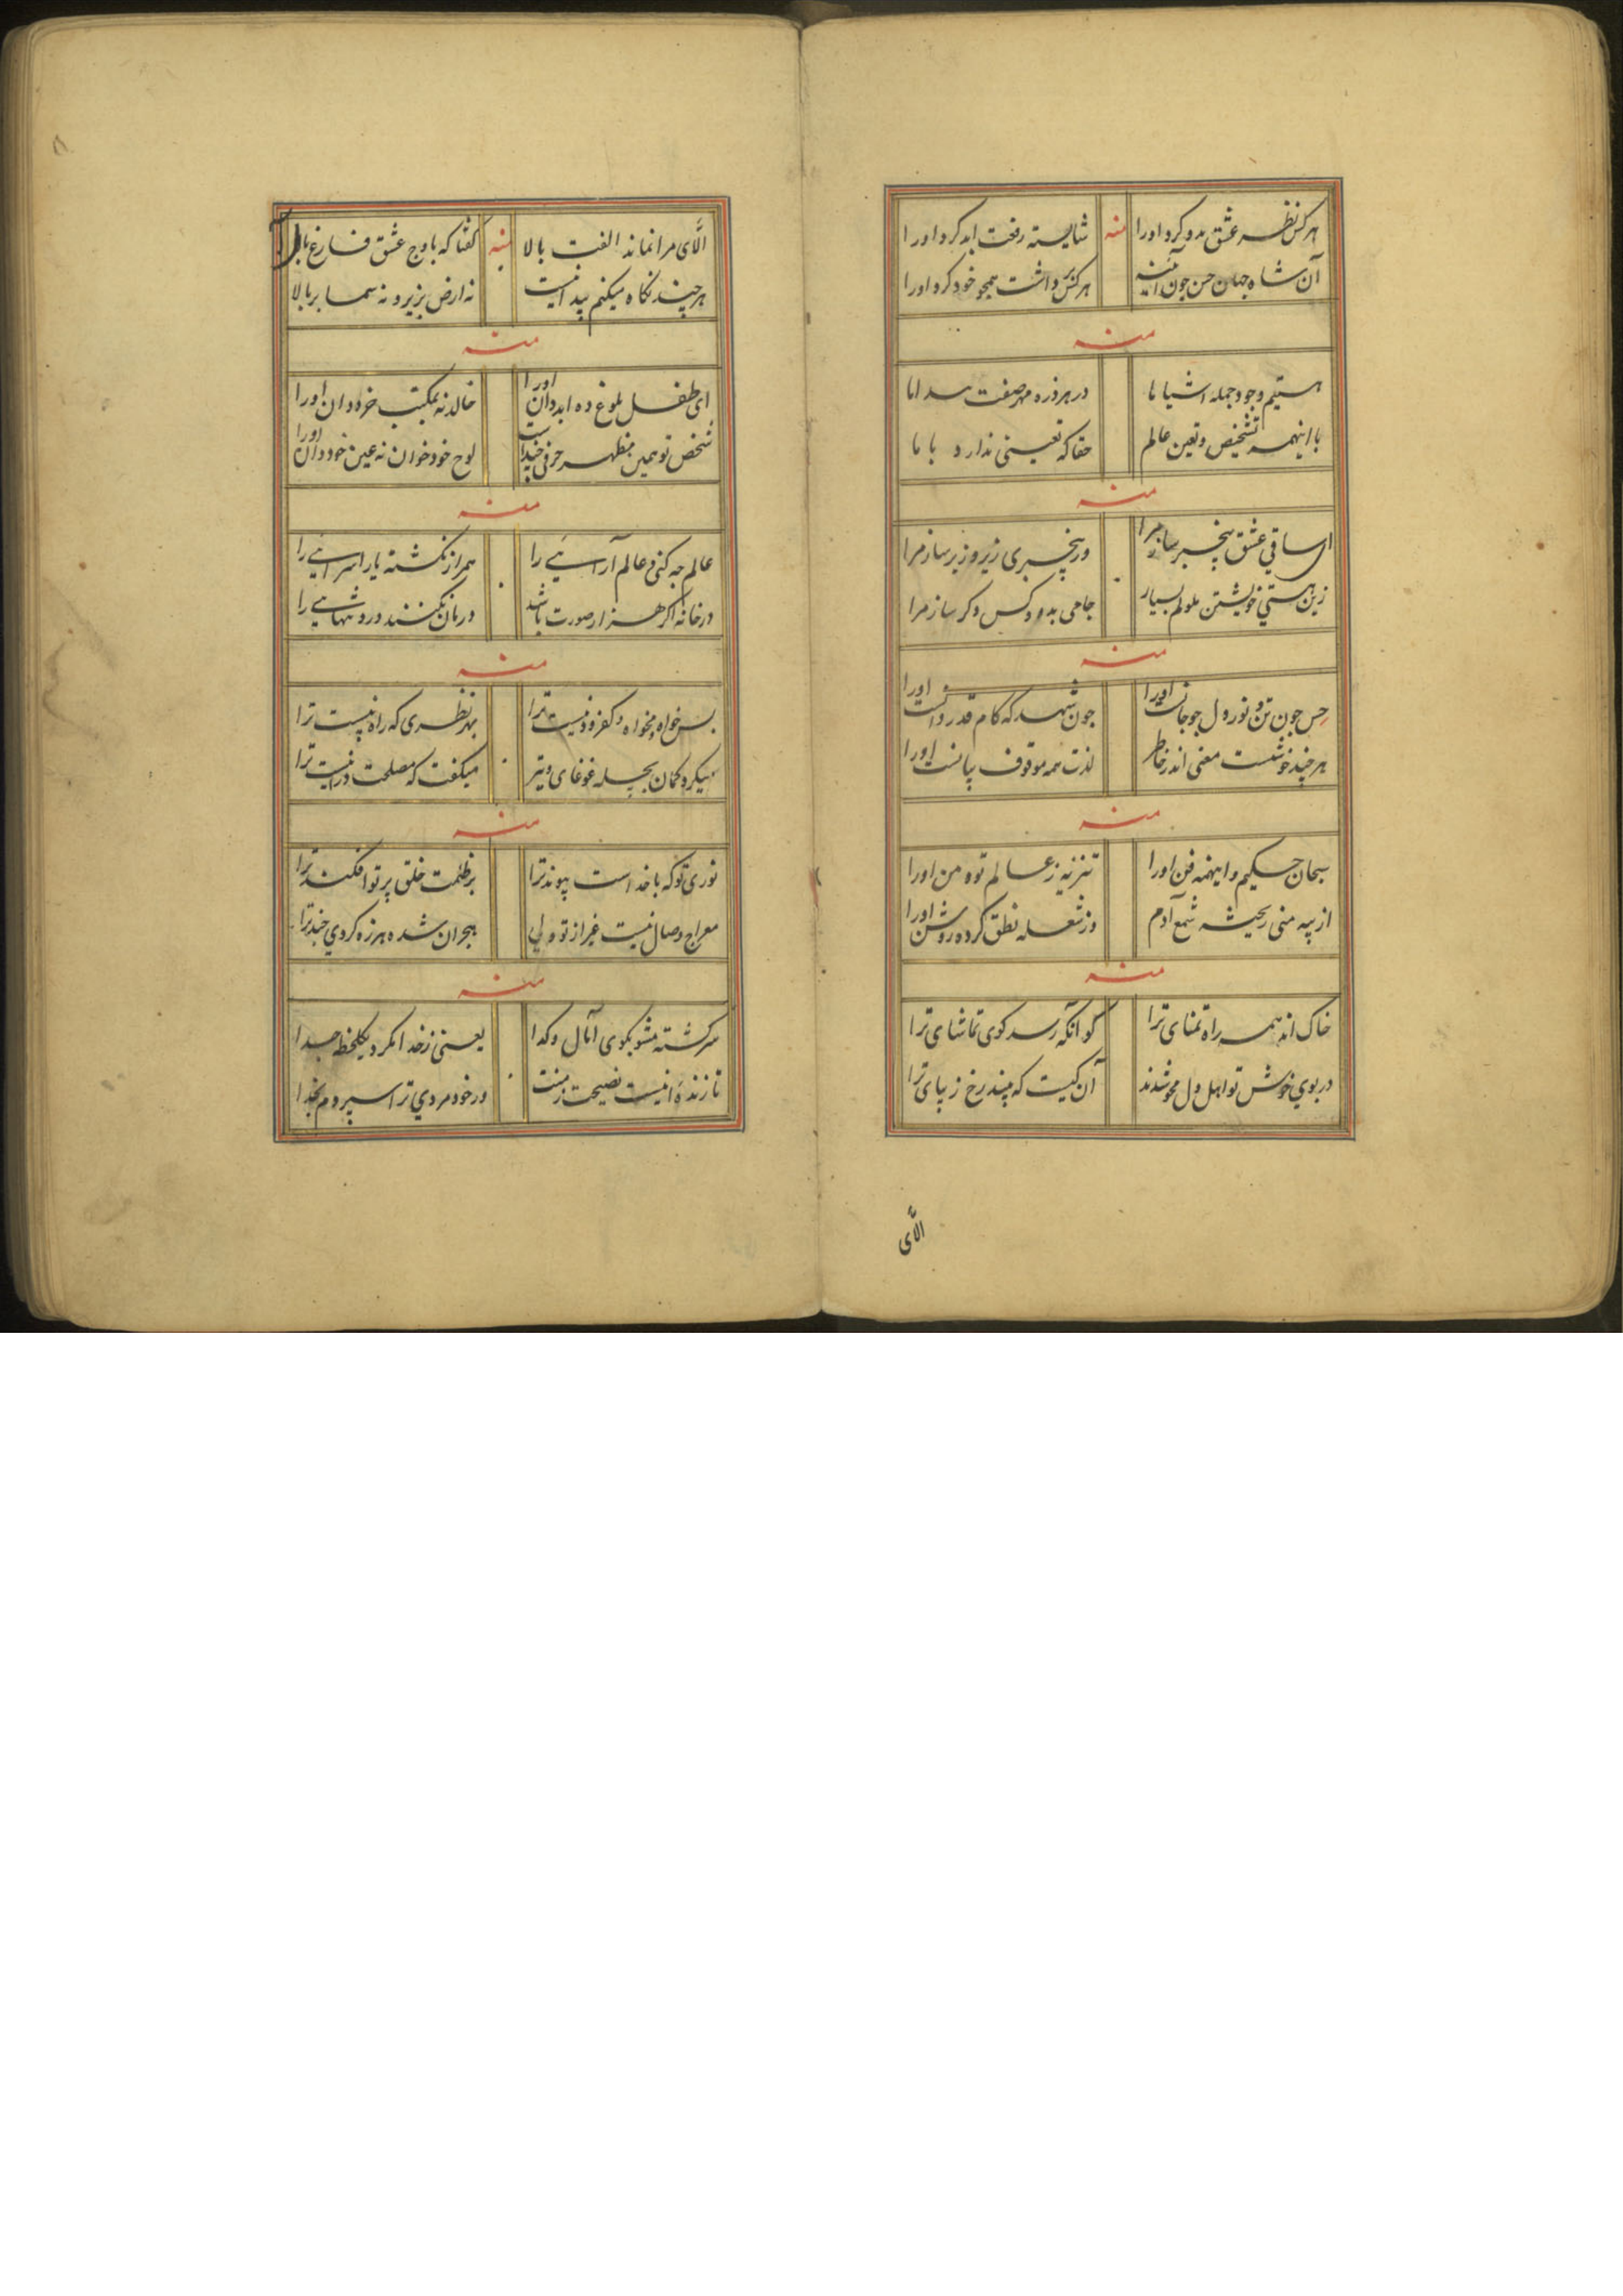 هرکس نظر عشق بدو کرد اورا
منه
شایسته رفعت ابد کرد اورا
آن شاه جهان حسن چون آینه
هرکس داشت همجو خود کرد اورا
منه
هستیم وجود جمله اشیا ما
در هر ذره مهر صفت ما
با اینهمه تشخیص و تعین عالم
حقا که تعینی ندارد با ما
منه
ای ساقی عشق بیخبر ساز مرا
در بیخبری زیر و زبر ساز مرا
زین هستی خویشتن ملولم بسیار
جامی بده و کس دکر ساز مرا
منه
حس جون تن و نور دل جو جانست اورا
جون شهد که کام قدر دانست اورا
هرچند خوشست معنی اندر خاطر
لذت همه موقوف اورا
منه
سبحان حکیم و اینهمه فن اورا
تنزیه ز عالم تو و من اورا
از پیه منی ریخته شمع آدم
وز شعله نطق کرده روشن اورا
منه
خاک اند همه راه تمنای ترا
کو آنکه رسد کوی تماشای ترا
در بوی خوش تو اهل دل محو شدند
آن کیست که بیند رخ زیبای ترا
الّای
الّای مرا نماند الفت بالا
منه
کفتا که باوج عشق فارغ بال
هرچند نکاه میکنم پیدا نیست
نه ارض بزیر و نه سما بر بالا
منه
ای طفل بلوغ ده ابد دان اورا
خالد نه بمکتب خرد دان اورا
شخص تو همین مظهر حرفی
لوح خود خوان نه عین خود دان اورا
منه
عالم چه کنی و عالم آرایی را
همراز نکشته یار اسرایی را
در خانه اکر هزار صورت باشد
درمان نکنند درد تنهایی را
منه
بس خواه و مخواه و کفر و دنیست ترا
بد نظری که راه نیست ترا
میکرد کمان بجمله غوغای و تیر
میکفت که مصلحت درنیست ترا
منه
نوری تو که با خداست پیوند ترا
بر ظلمت خلق پرتو افکند ترا
معراج وصال نیست غیر از تو ولی
هجران شده هرزه کردی چند ترا
منه
سرکشته مشو بکوی آمال و کدا
یعنی ز خدا مکرد یکلحظه جدا
تا زنده نیست نصیحت منت
ور خود مردی ترا سپردم بخدا